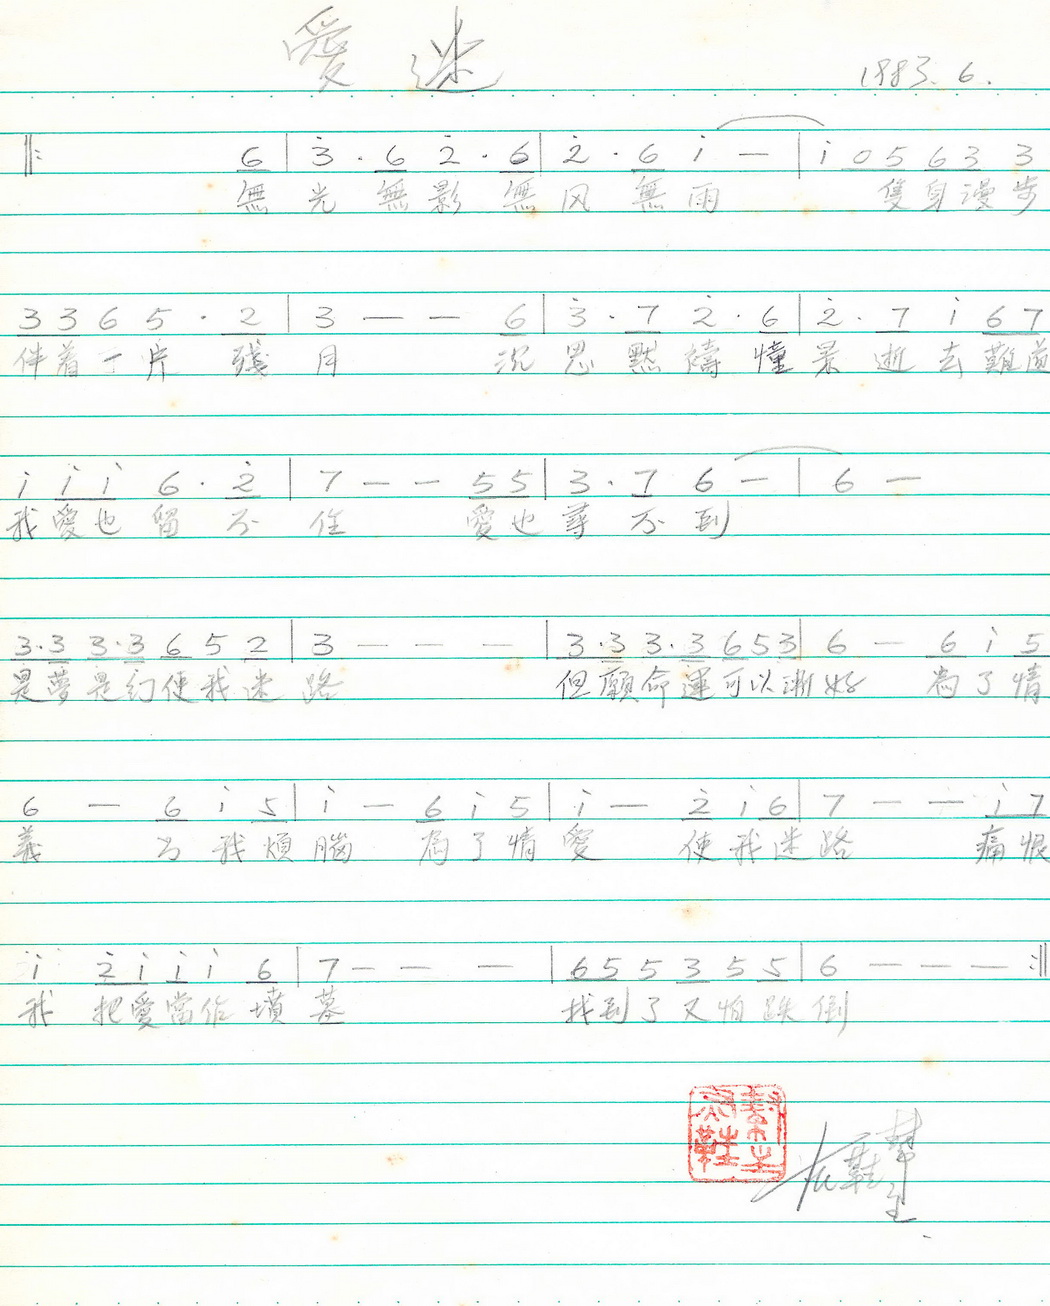 愛迷
1983. 6.
‖: 6 | 3 · 6 2̇ · 6 | 2̇ · 6 i — | i 0 5 6 3 3
無光無影無风無雨 隻身漫步
3 3 6 5 · 2 | 3 — — 6 | 3̇ · 7 2̇ · 6 | 2̇ · 7 i 6 7
伴着一片殘月 沉思默禱憧景逝去難道
i i i 6 · 2̇ | 7 — — 5 5 | 3 · 7 6 — | 6 —
我愛也留不住 愛也尋不到
3·3 3·3 6 5 2 | 3 — — — | 3·3 3·3 6 5 3 | 6 — 6 i 5
是夢是幻使我迷路 但願命運可以漸好 為了情
6 — 6 i 5 | i — 6 i 5 | i — 2̇ i 6 | 7 — — i 7
義 为我煩腦 為了情愛 使我迷路 痛恨
i 2̇ i i i 6 | 7 — — — | 6 5 5 3 5 5 | 6 — — — :‖
我把愛當作墳墓 找到了又怕跌倒